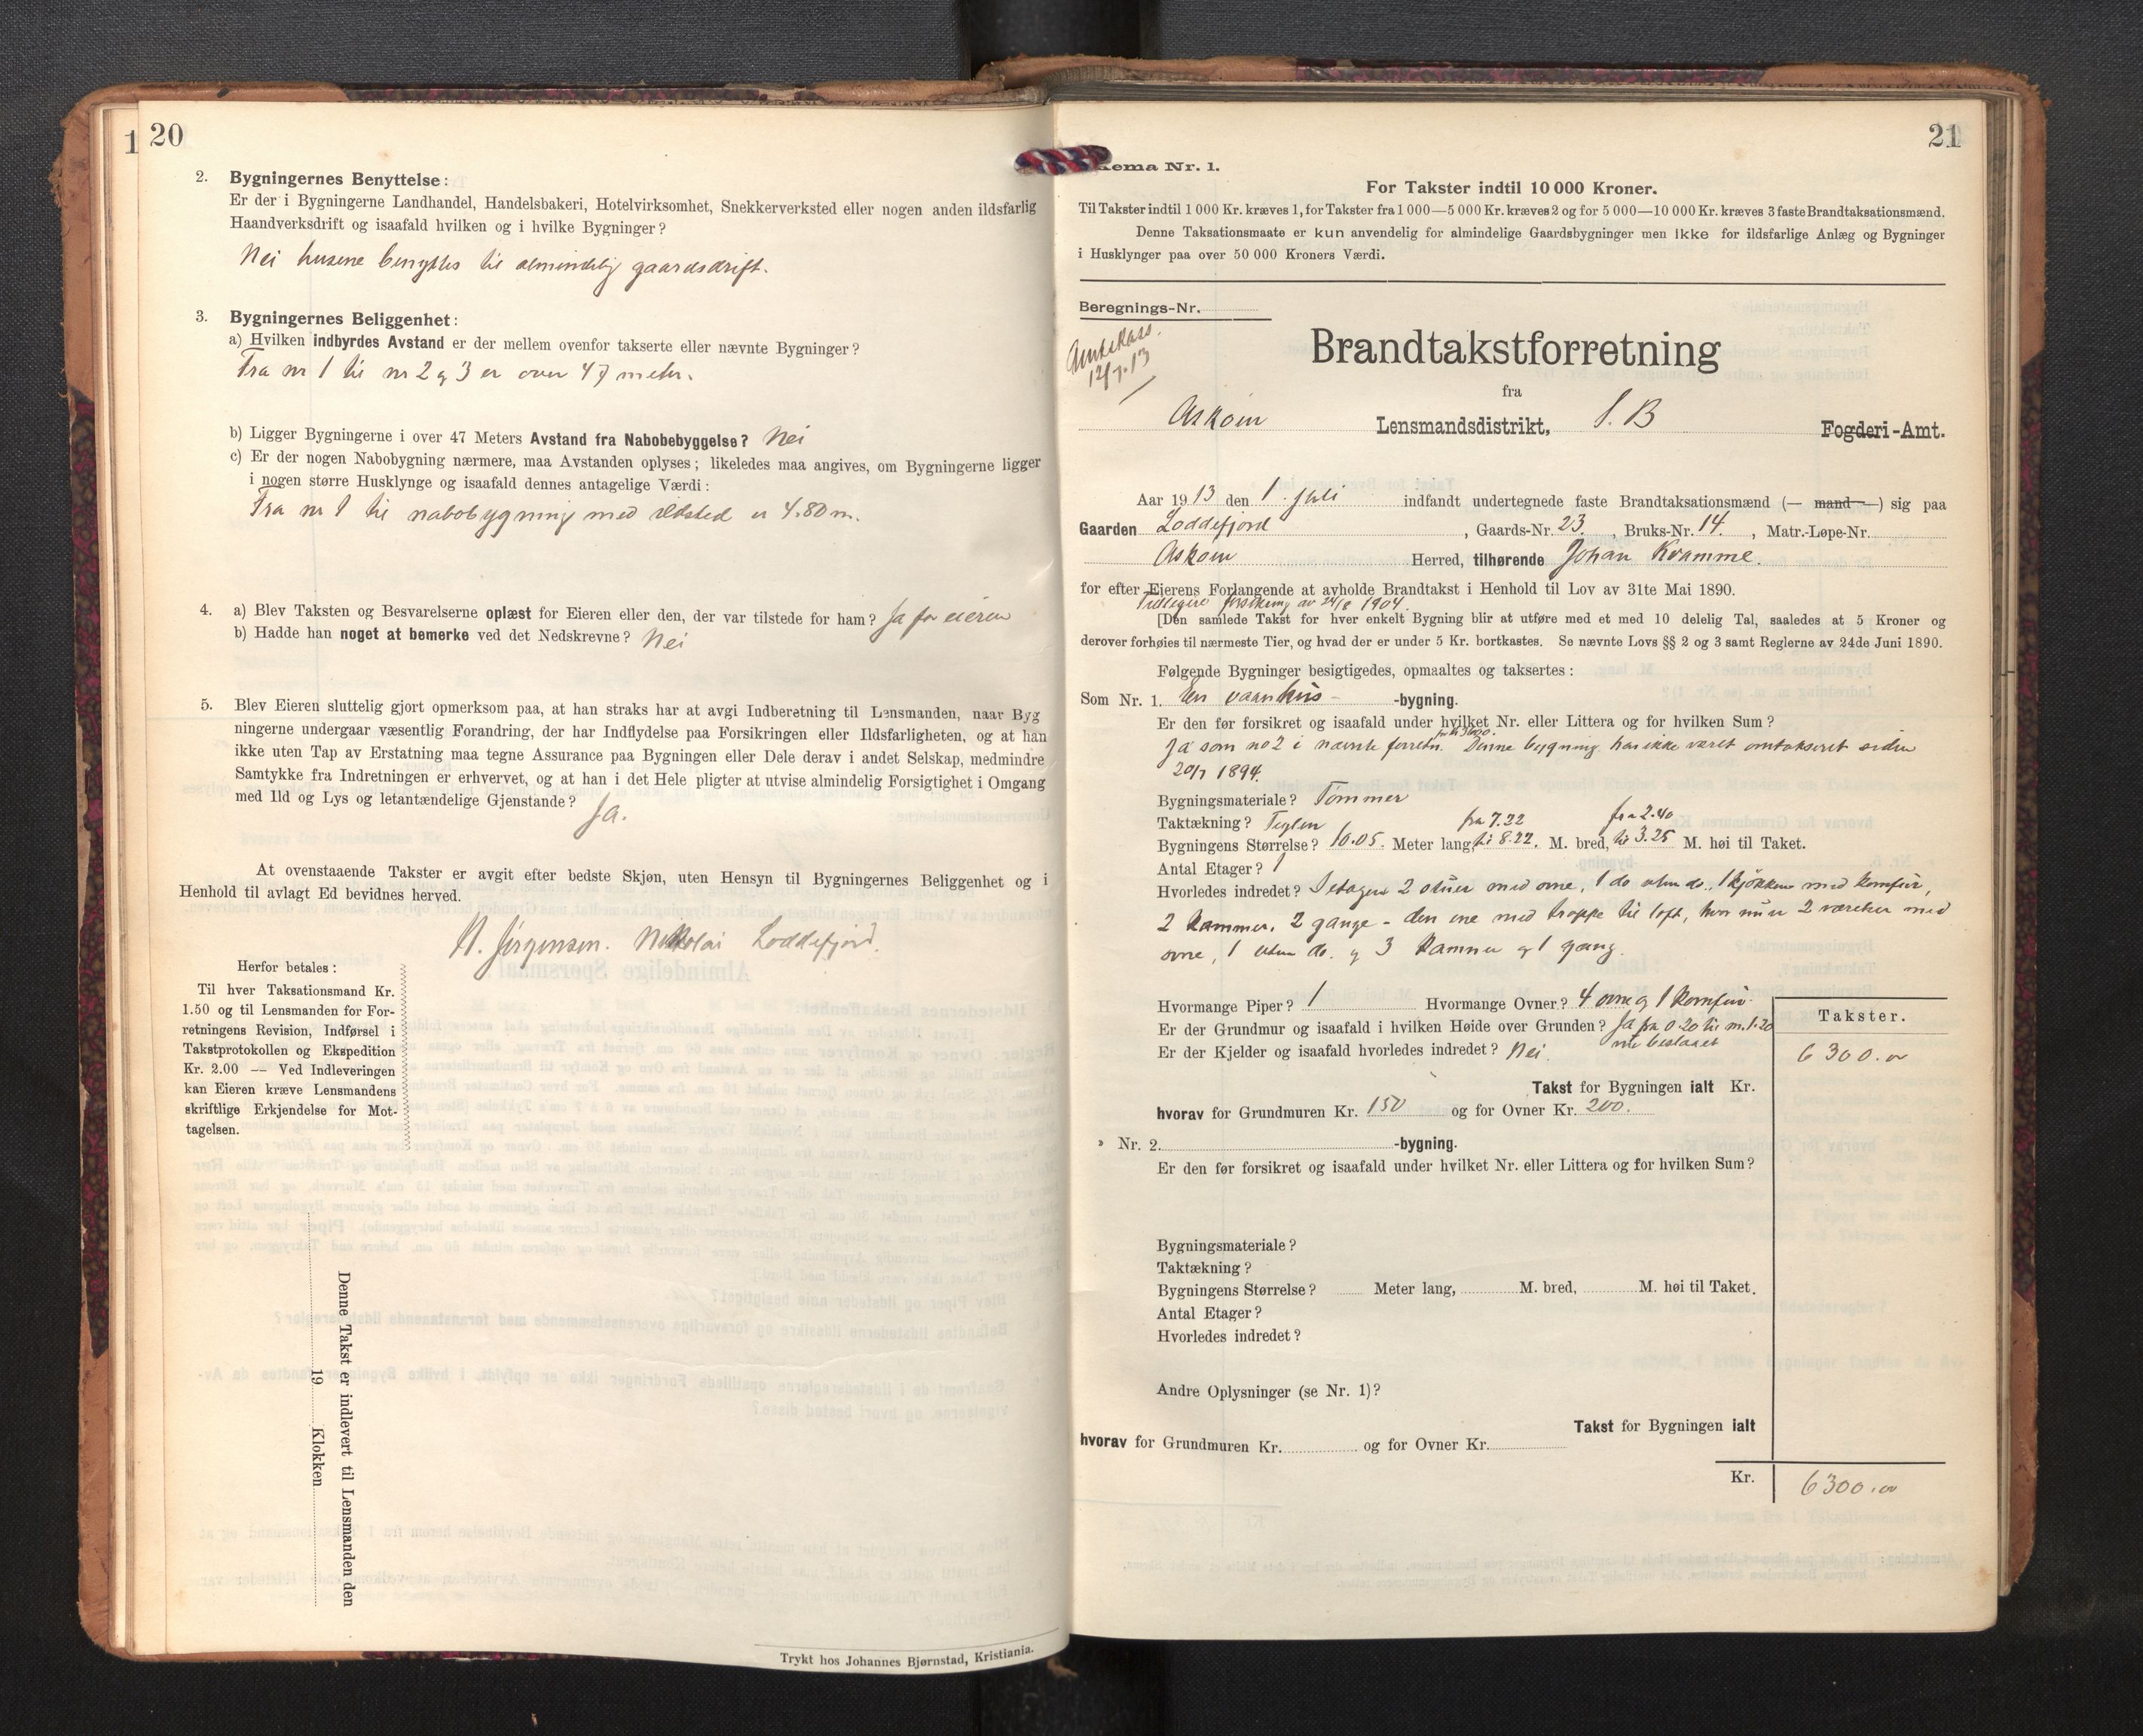 1 20
2. Bygningernes Benyttelse:
Er der i Bygningerne Landhandel, Handelsbakeri, Hotelvirksomhet, Snekkerverksted eller nogen anden ildsfarlig
Haandverksdrift og isaafald hvilken og i hvilke Bygninger?
Nei husene benyttes til almindelig gaardsdrift.
3. Bygningernes Beliggenhet:
a) Hvilken indbyrdes Avstand er der mellem ovenfor takserte eller nævnte Bygninger?
Fra nr 1 til nr 2 og 3 er over 47 meter.
b) Ligger Bygningerne i over 47 Meters Avstand fra Nabobebyggelse? Nei
c) Er der nogen Nabobygning nærmere, maa Avstanden oplyses; likeledes maa angives, om Bygningerne ligger
i nogen større Husklynge og isaafald dennes antagelige Værdi:
Fra nr 1 til nabobygning med ildsted er 4.80 m.
4. a) Blev Taksten og Besvarelserne oplæst for Eieren eller den, der var tilstede for ham? Ja for eieren
b) Hadde han noget at bemerke ved det Nedskrevne? Nei
5. Blev Eieren sluttelig gjort opmerksom paa, at han straks har at avgi Indberetning til Lensmanden, naar Byg
ningerne undergaar væsentlig Forandring, der har Indflydelse paa Forsikringen eller Ildsfarligheten, og at han
ikke uten Tap av Erstatning maa tegne Assurance paa Bygningen eller Dele derav i andet Selskap, medmindre
Samtykke fra Indretningen er erhvervet, og at han i det Hele pligter at utvise almindelig Forsigtighet i Omgang
med Ild og Lys og letantændelige Gjenstande? Ja.
At ovenstaaende Takster er avgit efter bedste Skjøn, uten Hensyn til Bygningernes Beliggenhet og i
Henhold til avlagt Ed bevidnes herved.
N. Jørgensen. Nikolai Loddefjord.
Herfor betales:
Til hver Taksationsmand Kr.
1.50 og til Lensmanden for For-
retningens Revision, Indførsel i
Takstprotokollen og Ekspedition
Kr. 2.00 — Ved Indleveringen
kan Eieren kræve Lensmandens
skriftlige Erkjendelse for Mot-
tagelsen.
Denne Takst er indlevert til Lensmanden den
19 Klokken
Trykt hos Johannes Bjørnstad, Kristiania.
21
kema Nr. 1.
For Takster indtil 10 000 Kroner.
Til Takster indtil 1 000 Kr. kræves 1, for Takster fra 1 000—5 000 Kr. kræves 2 og for 5 000—10 000 Kr. kræves 3 faste Brandtaksationsmænd.
Denne Taksationsmaate er kun anvendelig for almindelige Gaardsbygninger men ikke for ildsfarlige Anlæg og Bygninger
i Husklynger paa over 50 000 Kroners Værdi.
Beregnings-Nr.
Amtskass.
12/7.13
Brandtakstforretning
fra
Askøin Lensmandsdistrikt, S. B Fogderi-Amt.
Aar 1913 den 1. Juli indfandt undertegnede faste Brandtaksationsmænd (— mand —) sig paa
Gaarden Loddefjord, Gaards-Nr. 23, Bruks-Nr. 14., Matr.-Løpe-Nr.
Askøin Herred, tilhørende Johan Kvamme.
for efter Eierens Forlangende at avholde Brandtakst i Henhold til Lov av 31te Mai 1890.
Tidligere forsikring av 24/8 1904.
[Den samlede Takst for hver enkelt Bygning blir at utføre med et med 10 delelig Tal, saaledes at 5 Kroner og
derover forhøies til nærmeste Tier, og hvad der er under 5 Kr. bortkastes. Se nævnte Lovs §§ 2 og 3 samt Reglerne av 24de Juni 1890.
Følgende Bygninger besigtigedes, opmaaltes og taksertes:
Som Nr. 1. En vaanhus -bygning.
Er den før forsikret og isaafald under hvilket Nr. eller Littera og for hvilken Sum?
Ja som no 2 i nævnte forretn. Denne bygning har ikke været omtakseret siden
20/7 1894.
Bygningsmateriale? Tømmer
Taktækning? Teglen fra 7.22 fra 2.40
Bygningens Størrelse? 10.05. Meter lang, til 8.22. M. bred, til 3.25 M. høi til Taket.
Antal Etager? 1
Hvorledes indret? I etagen 2 stuer med ovne, 1 do uten do., 1 kjøkken med komfur,
2 kammer, 2 gange - den ene med trappe til loft, hvor nu er 2 værelser med
ovne, 1 uten do. og 3 kamner og 1 gang.
Hvormange Piper? 1 Hvormange Ovner? 4 ovne og 1 komfur.
Er der Grundmur og isaafald i hvilken Høide over Grunden? Ja fra 0.20 til m. 1.20
Er der Kjelder og isaafald hvorledes indredet? Nei.
Takster.
6300.00
Takst for Bygningen ialt Kr.
hvorav for Grundmuren Kr. 150 og for Ovner Kr. 200.
» Nr. 2. -bygning.
Er den før forsikret og isaafald under hvilket Nr. eller Littera og for hvilken Sum?
Bygningsmateriale?
Taktækning?
Bygningens Størrelse? Meter lang, M. bred, M. høi til Taket.
Antal Etager?
Hvorledes indredet?
Andre Oplysninger (se Nr. 1)?
Takst for Bygningen ialt
hvorav for Grundmuren Kr. og for Ovner Kr.
Kr. 6300.00